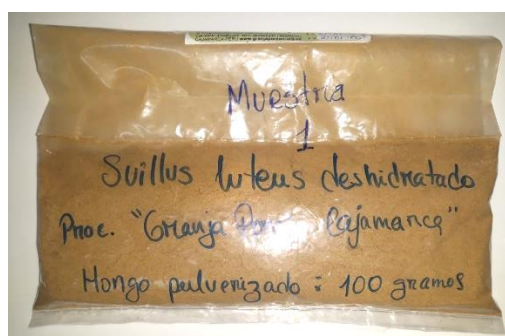 Muestra
1
Suillus luteus deshidratado
Proc. "Granja Porcón Cajamarca"
Hongo pulverizado : 100 gramos